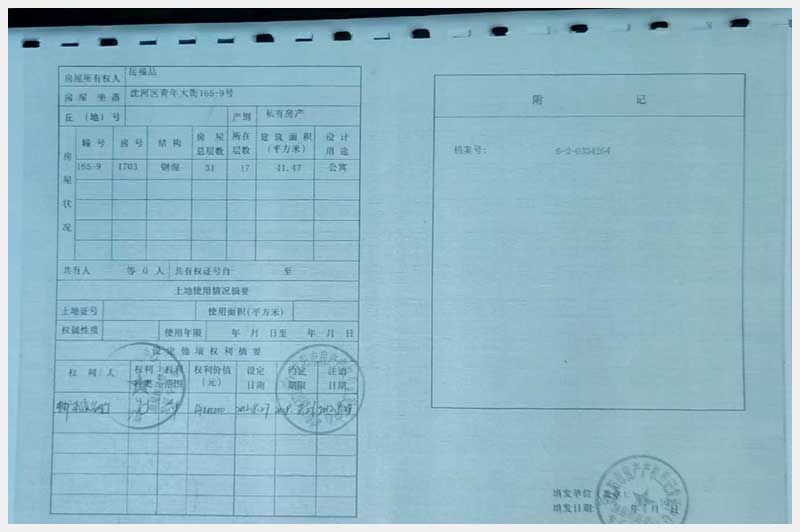 房屋所有权人 岳福品
房屋坐落 沈河区青年大街165-9号
丘(地)号 产别 私有房产
房屋状况
幢号 房号 结构 房屋总层数 所在层数 建筑面积(平方米) 设计用途
165-9 1703 钢混 31 17 41.47 公寓
共有人 等 0 人 共有权证号自 至
土地使用情况摘要
土地证号 使用面积(平方米)
权属性质 使用年限 年 月 日至 年 月 日
设定他项权利摘要
权利人 权利种类 权利范围 权利价值(元) 设定日期 约定期限 注销日期
附 记
档案号: 6-2-0334264
填发单位
填发日期: 年 月 日